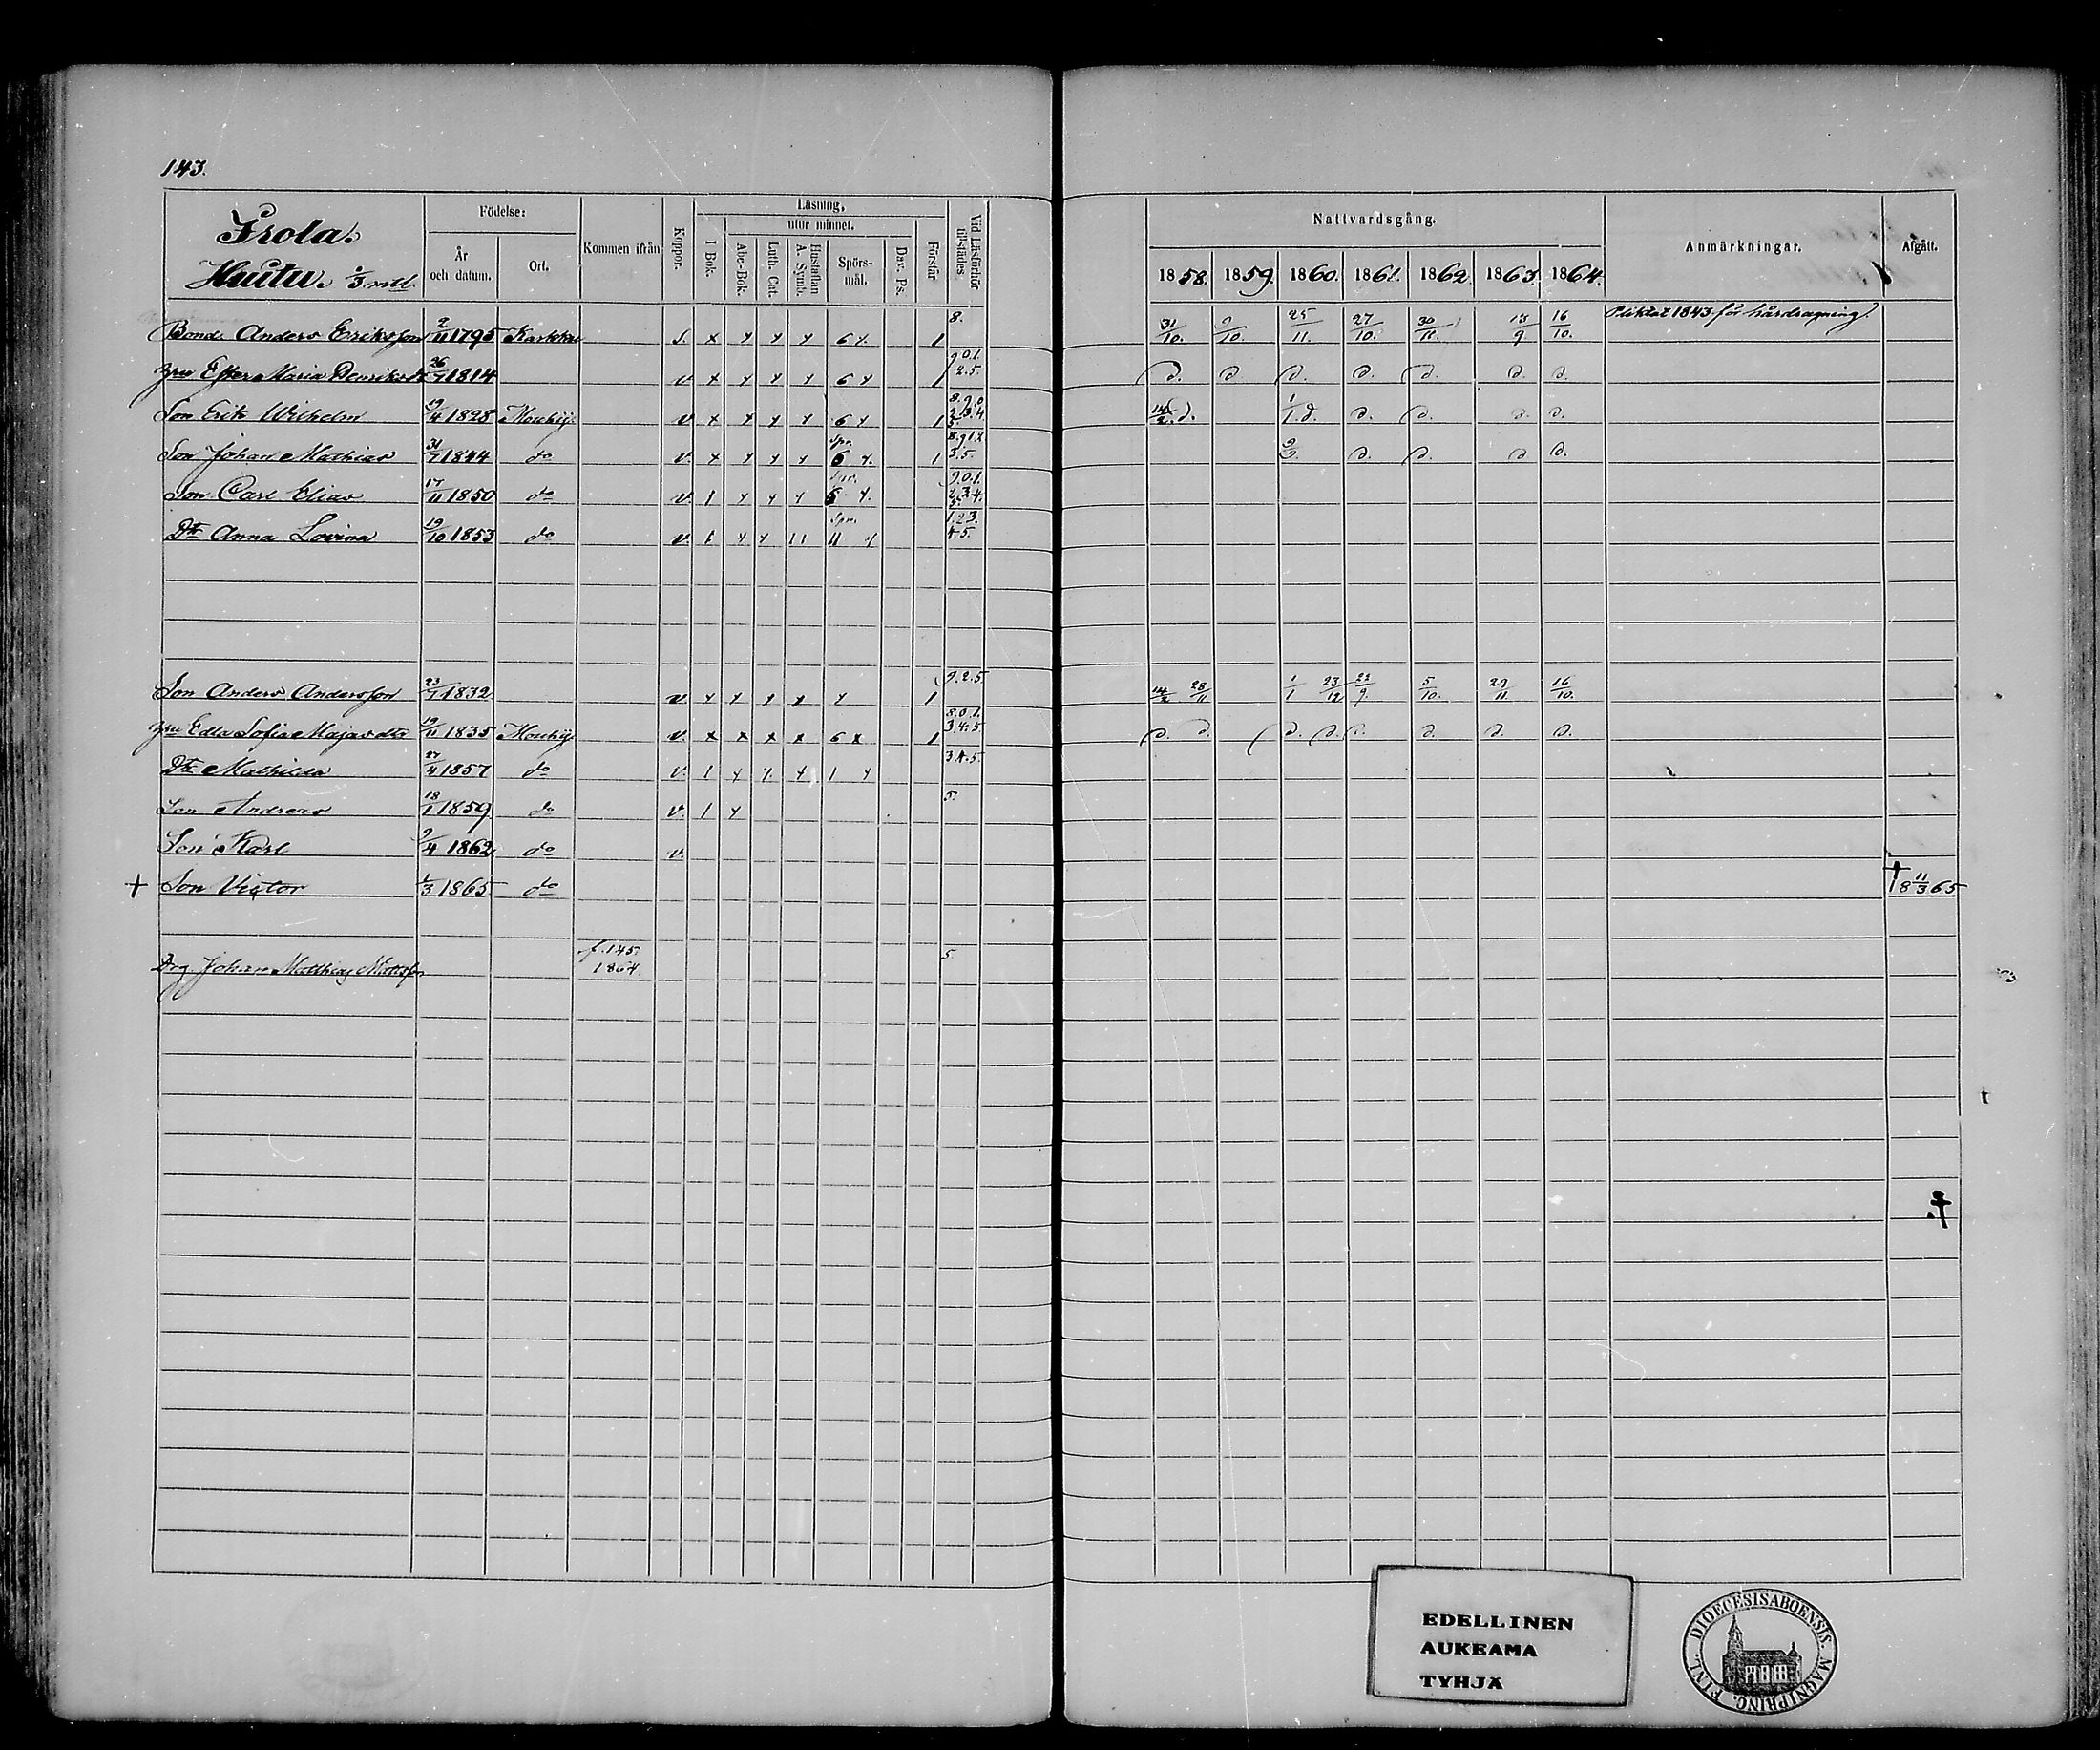 143.
Frola.
Huitu. 2/3 mtl.
Födelse:
År och datum.
Ort.
Kommen ifrån
Koppor.
Läsning,
I Bok.
utur minnet.
Abc-Bok.
Luth. Cat.
Hustaflan A. Symb.
Spörsmål.
Dav. Ps.
Förstår
Vid Läsförhör tillstädes.
Nattvardsgång.
1858. 1859. 1860. 1861. 1862. 1863. 1864.
Anmärkningar.
Afgått.
Bond. Anders Eriksson 2/11 1795 Karkku S. x y y y 6 y. 1 8. 31/10. 9/10. 25/11. 27/10. 16/10. Pliktat 1843 för hårdragning.
Hu Ester Maria Henriksdr 26/7 1814 v x y y y 6 y 1 9.0.1. 2.5. d. d. d. d. d. d. d.
Son Erik Wilhelm 19/4 1828 Mouhij. v x y y y 6 y 1 8.9.0 2.3.4 5. 14/2. d. 1/1. d. d. d. d. d.
Son Johan Mathias 31/7 1844 do v. x y y y Spr. 6 y. 1 3.5. d. d. d. d.
Son Carl Elias 17/11 1850 do v. 1 y y y 6 y. 9.0.1. 2.3.4. 5.
Dtr Anna Lovina 19/10 1853 do v. 1 y y 11 Spr. 11 y 1.2.3. 4.5.
Son Anders Andersson 23/7 1832 v. y y y y y 1 9.2.5. 14/2 28/11 1/1 23/12 22/9. 5/10. 29/11 16/10.
Hu Edla Sofia Majasdtr 19/11 1835 Mouhij. v. x x x x 6 x 1 8.0.1. 3.4.5. d. d. d. d. d. d. d. d.
Dtr Mathilda 27/4 1857 do v. 1 y y. y 1 y 3.4.5.
Son Andreas 18/1 1859 do v. 1 y 5.
Son Karl 9/4 1862 do v.
+ Son Victor 1/3 1865 do † 18 11/3 65
Drg. Johan Matthias f. 145. 1864. 5.
EDELLINEN
AUKEAMA
TYHJÄ
DIOECESIS ABOENSIS. MAGNI PRINC. FINL.